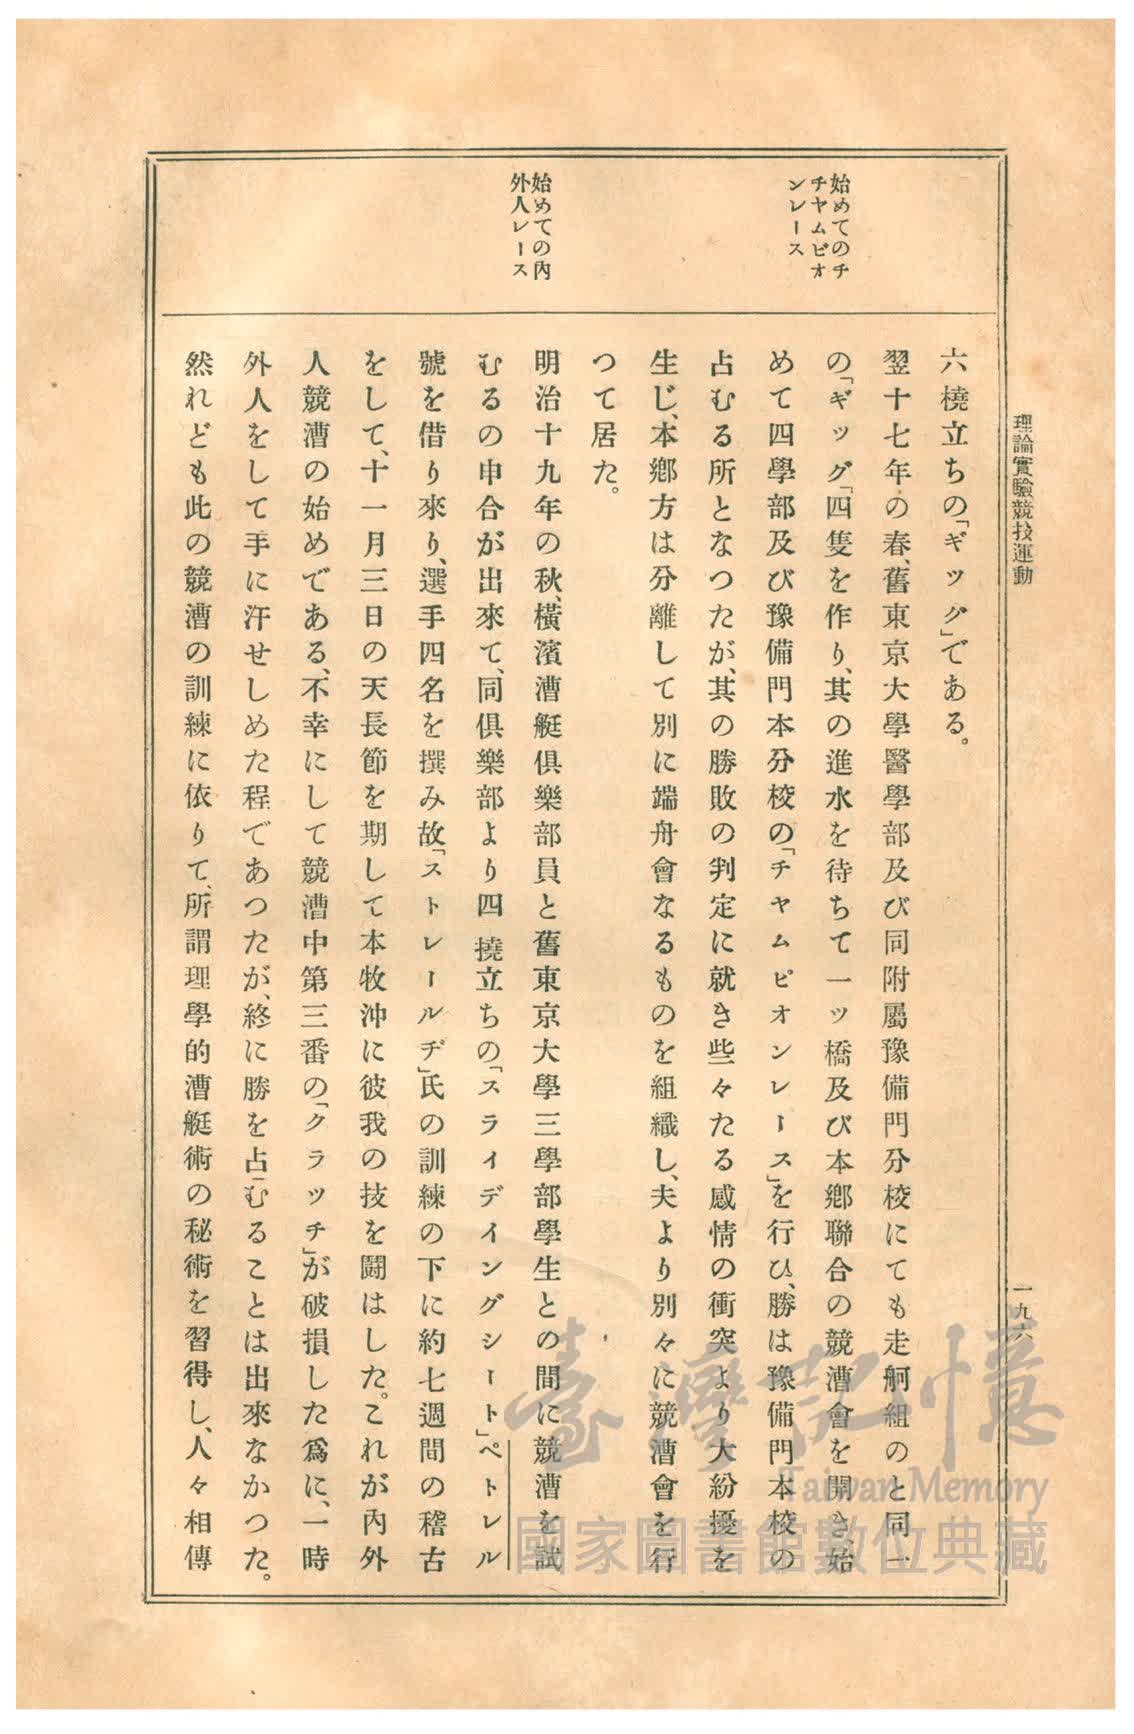 理論實驗競技運動
一九六
始めてのチ
チヤムピオ
ンレース
始めての內
外人レース
六橈立ちの「ギッグ」である。
翌十七年の春、舊東京大學醫學部及び同附屬豫備門分校にても走舸組のと同一
の「ギッグ」四隻を作り、其の進水を待ちて一ッ橋及び本鄕聯合の競漕會を開き、始
めて四學部及び豫備門本分校の「チヤムピオンレース」を行ひ、勝は豫備門本校の
占むる所となつたが、其の勝敗の判定に就き些々たる感情の衝突より大紛擾を
生じ、本鄕方は分離して別に端舟會なるものを組織し、夫より別々に競漕會を行
つて居た。
明治十九年の秋、橫濱漕艇俱樂部員と舊東京大學三學部學生との間に競漕を試
むるの申合が出來て、同俱樂部より四撓立ちの「スライデイングシート」ペトレル
號を借り來り、選手四名を撰み故「ストレールヂ」氏の訓練の下に約七週間の稽古
をして、十一月三日の天長節を期して本牧沖に彼我の技を鬪はした。これが內外
人競漕の始めである、不幸にして競漕中第三番の「クラッチ」が破損した爲に、一時
外人をして手に汗せしめた程であつたが、終に勝を占むることは出來なかつた。
然れども此の競漕の訓練に依りて、所謂理學的漕艇術の秘術を習得し、人々相傳
臺灣記憶
Taiwan Memory
國家圖書館數位典藏